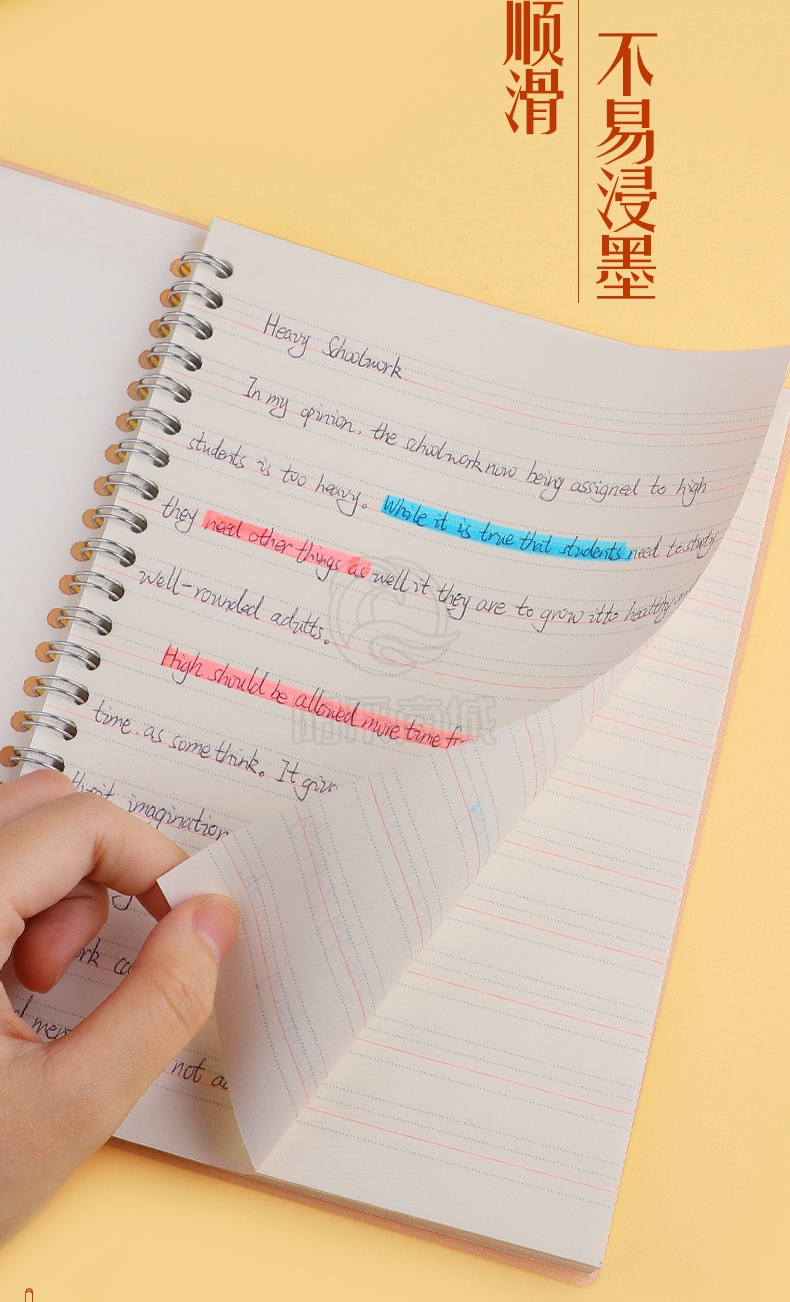 不易浸墨
顺滑
Heavy Schoolwork
In my opinion, the schoolwork now being assigned to high
students is too heavy. While it is true that students need to study
they need other things as well it they are to grow itto healthy
well-rounded adults.
High should be allowed more time
time, as some think. It give
imagination
not
商城